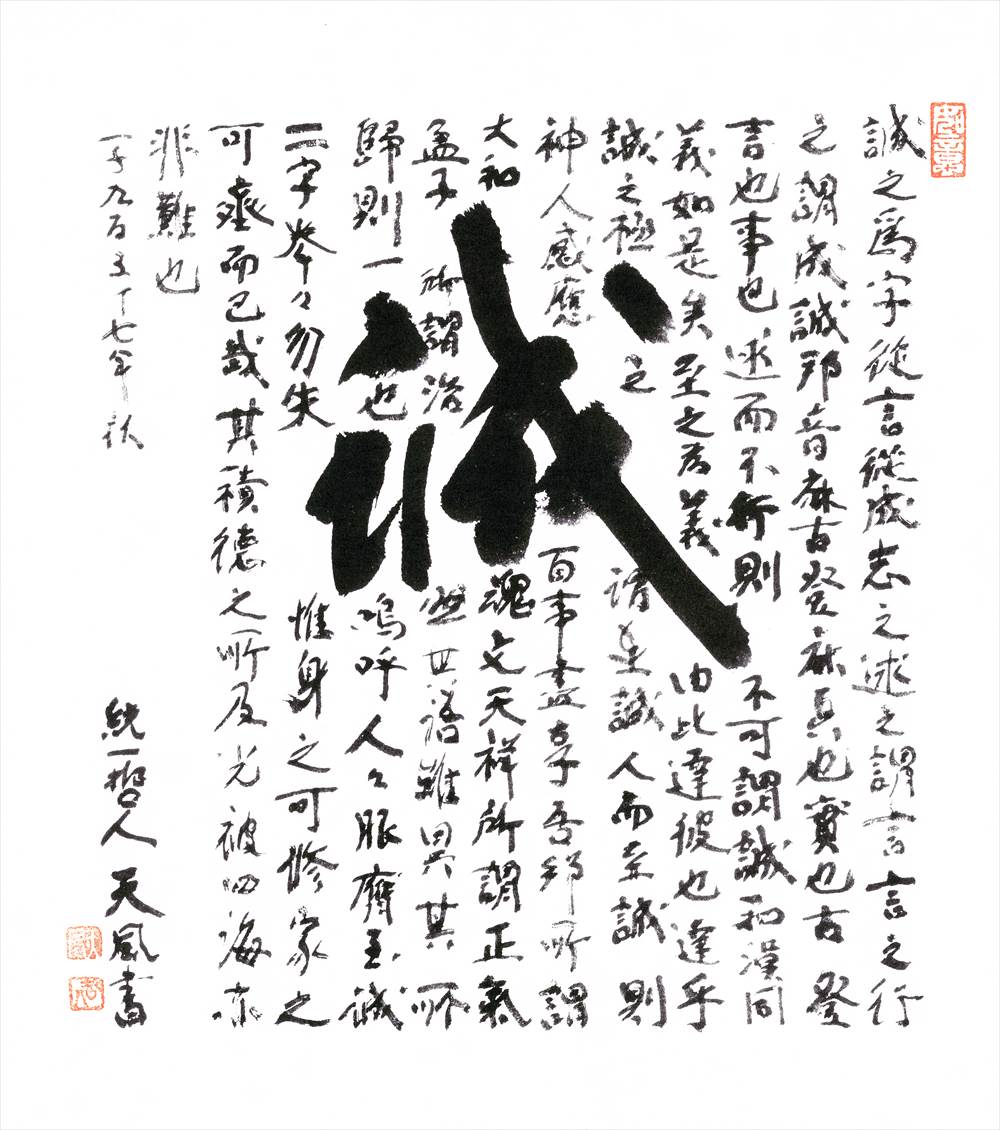 誠之為字從言從成志之逑之謂言言之行
之謂成誠邦音麻古登麻古登
言也事也逑而不行則不可謂誠和漢同
義如是矣至之為義由比達彼也達乎
誠之極之謂至誠人而至誠則
神人感應百事盡享吾邦所謂
大和魂文天祥所謂正氣
孟子所謂浩然其語雖異其所
歸則一也嗚呼人々服膺至誠
二字拳々勿失惟身之可修家之
可齊而已哉其積德之所及光被四海亦
非難也
一千九百五十七年秋
統一哲人 天風書
誠